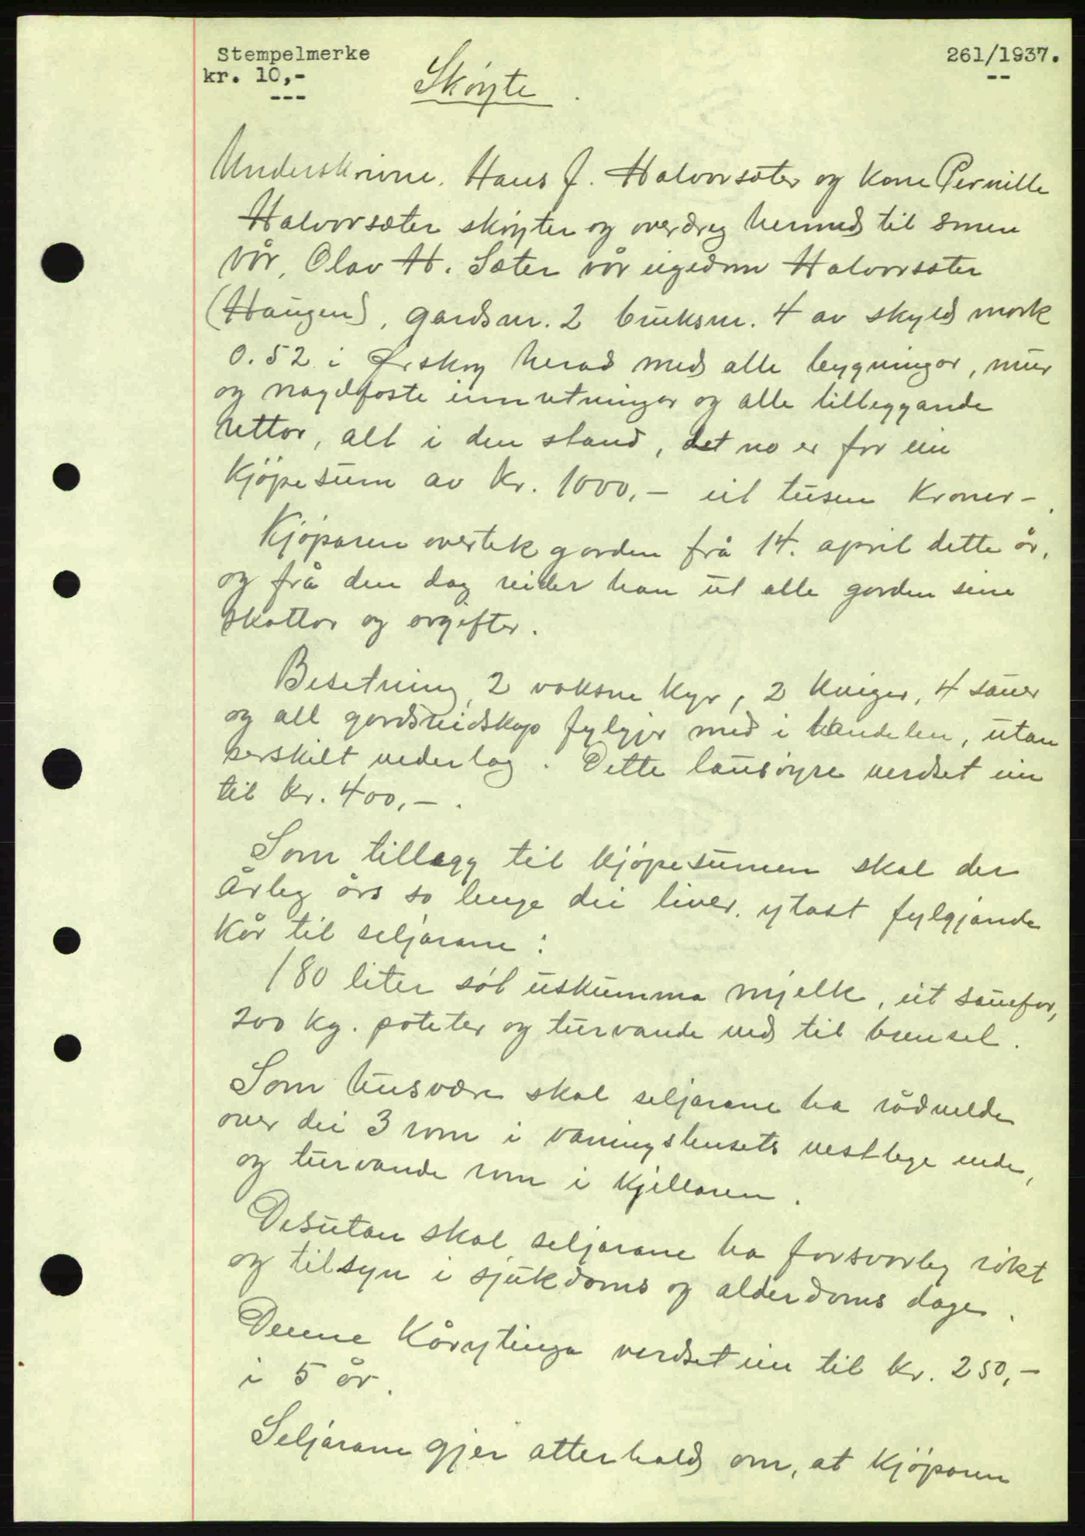 Stempelmerke
kr. 10,-
261/1937.
Skøyte
Underskrivne. Hans J. Halvorsæter og kone Pernille
Halvorsæter skøyter og overdreg hermed til sønen
vår, Olav H. Sæter vår eigedom Halvorsæter
(Haugen), gardsnr. 2 bruksnr. 4 av skyld mørk
0.52 i Ørskog herad med alle bygningar, mur
og nagelfaste innretningar og alle tilleggande
rettar, alt i den stand, det no er for ein
kjøpesum av kr. 1000,- eit tusen kroner-.
Kjøparen overtek garden frå 14. april dette år,
og frå den dag reider han ut alle garden sine
skattar og avgifter.
Besetning, 2 vaksne kyr, 2 kviger, 4 sauer
og all gardsreidskap fylgjer med i handelen, utan
serskilt vederlag. Dette lausøyre verdset ein
til kr. 400,-.
Som tillegg til kjøpesumen skal der
årleg års so lenge dei liver, ytast fylgjande
kår til seljarane:
180 liter søt uskumma mjelk, eit sauefor,
200 kg. poteter og turvande ved til brensel.
Som husvære skal seljarane ha rådvelde
over dei 3 rom i våningshusets vestlege ende,
og turvande rom i kjellaren.
Desutan skal seljarane ha forsvarleg røkt
og tilsyn i sjukdoms og alderdoms dage.
Denne kårytinga verdset ein til kr. 250,-
i 5 år.
Seljarane gjer atterhald om, at kjøparen